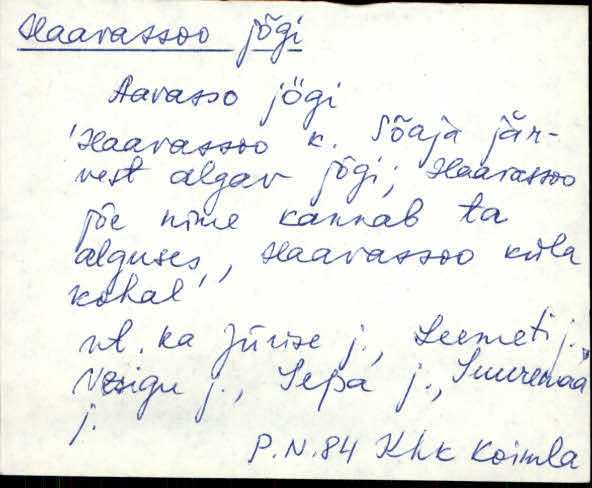 Haavassoo jõgi
Aavasso jögi
'Haavassoo k. Sõaja jär-
vest algav jõgi; Haavassoo
jõe nime kannab ta
alguses, Haavassoo küla
kohal'
vt. ka Jürise j., Leemeti j.,
Vesiku j., Sepa j., Suuremaa
j.
P.N.84 Khk Koimla